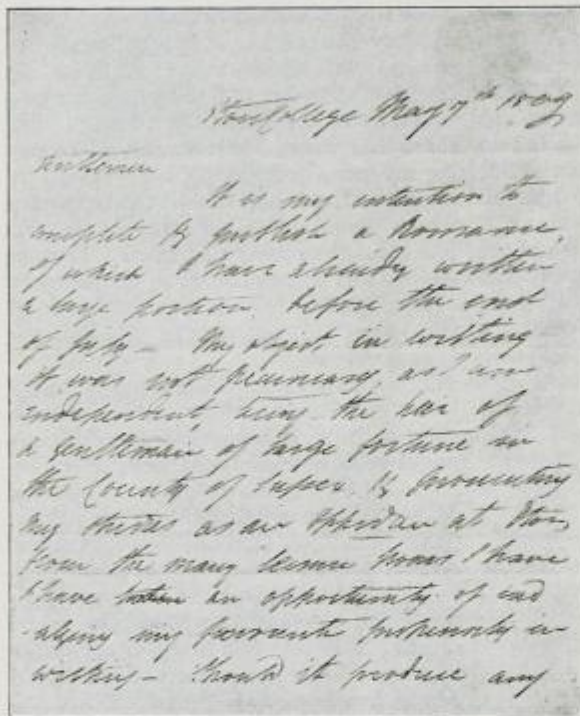 Eton College May 7th 1809
Gentlemen
It is my intention to
complete & publish a Romance,
of which I have already written
a large portion, before the end
of July— My object in writing
it was not pecuniary, as I am
independent, being the heir of
a gentleman of large fortune in
the County of Sussex, & prosecuting
my studies as an Oppidan at Eton,
from the many leisure hours I have
I have an opportunity of ind
-ulging my favourite propensity in
writing— Should it produce any